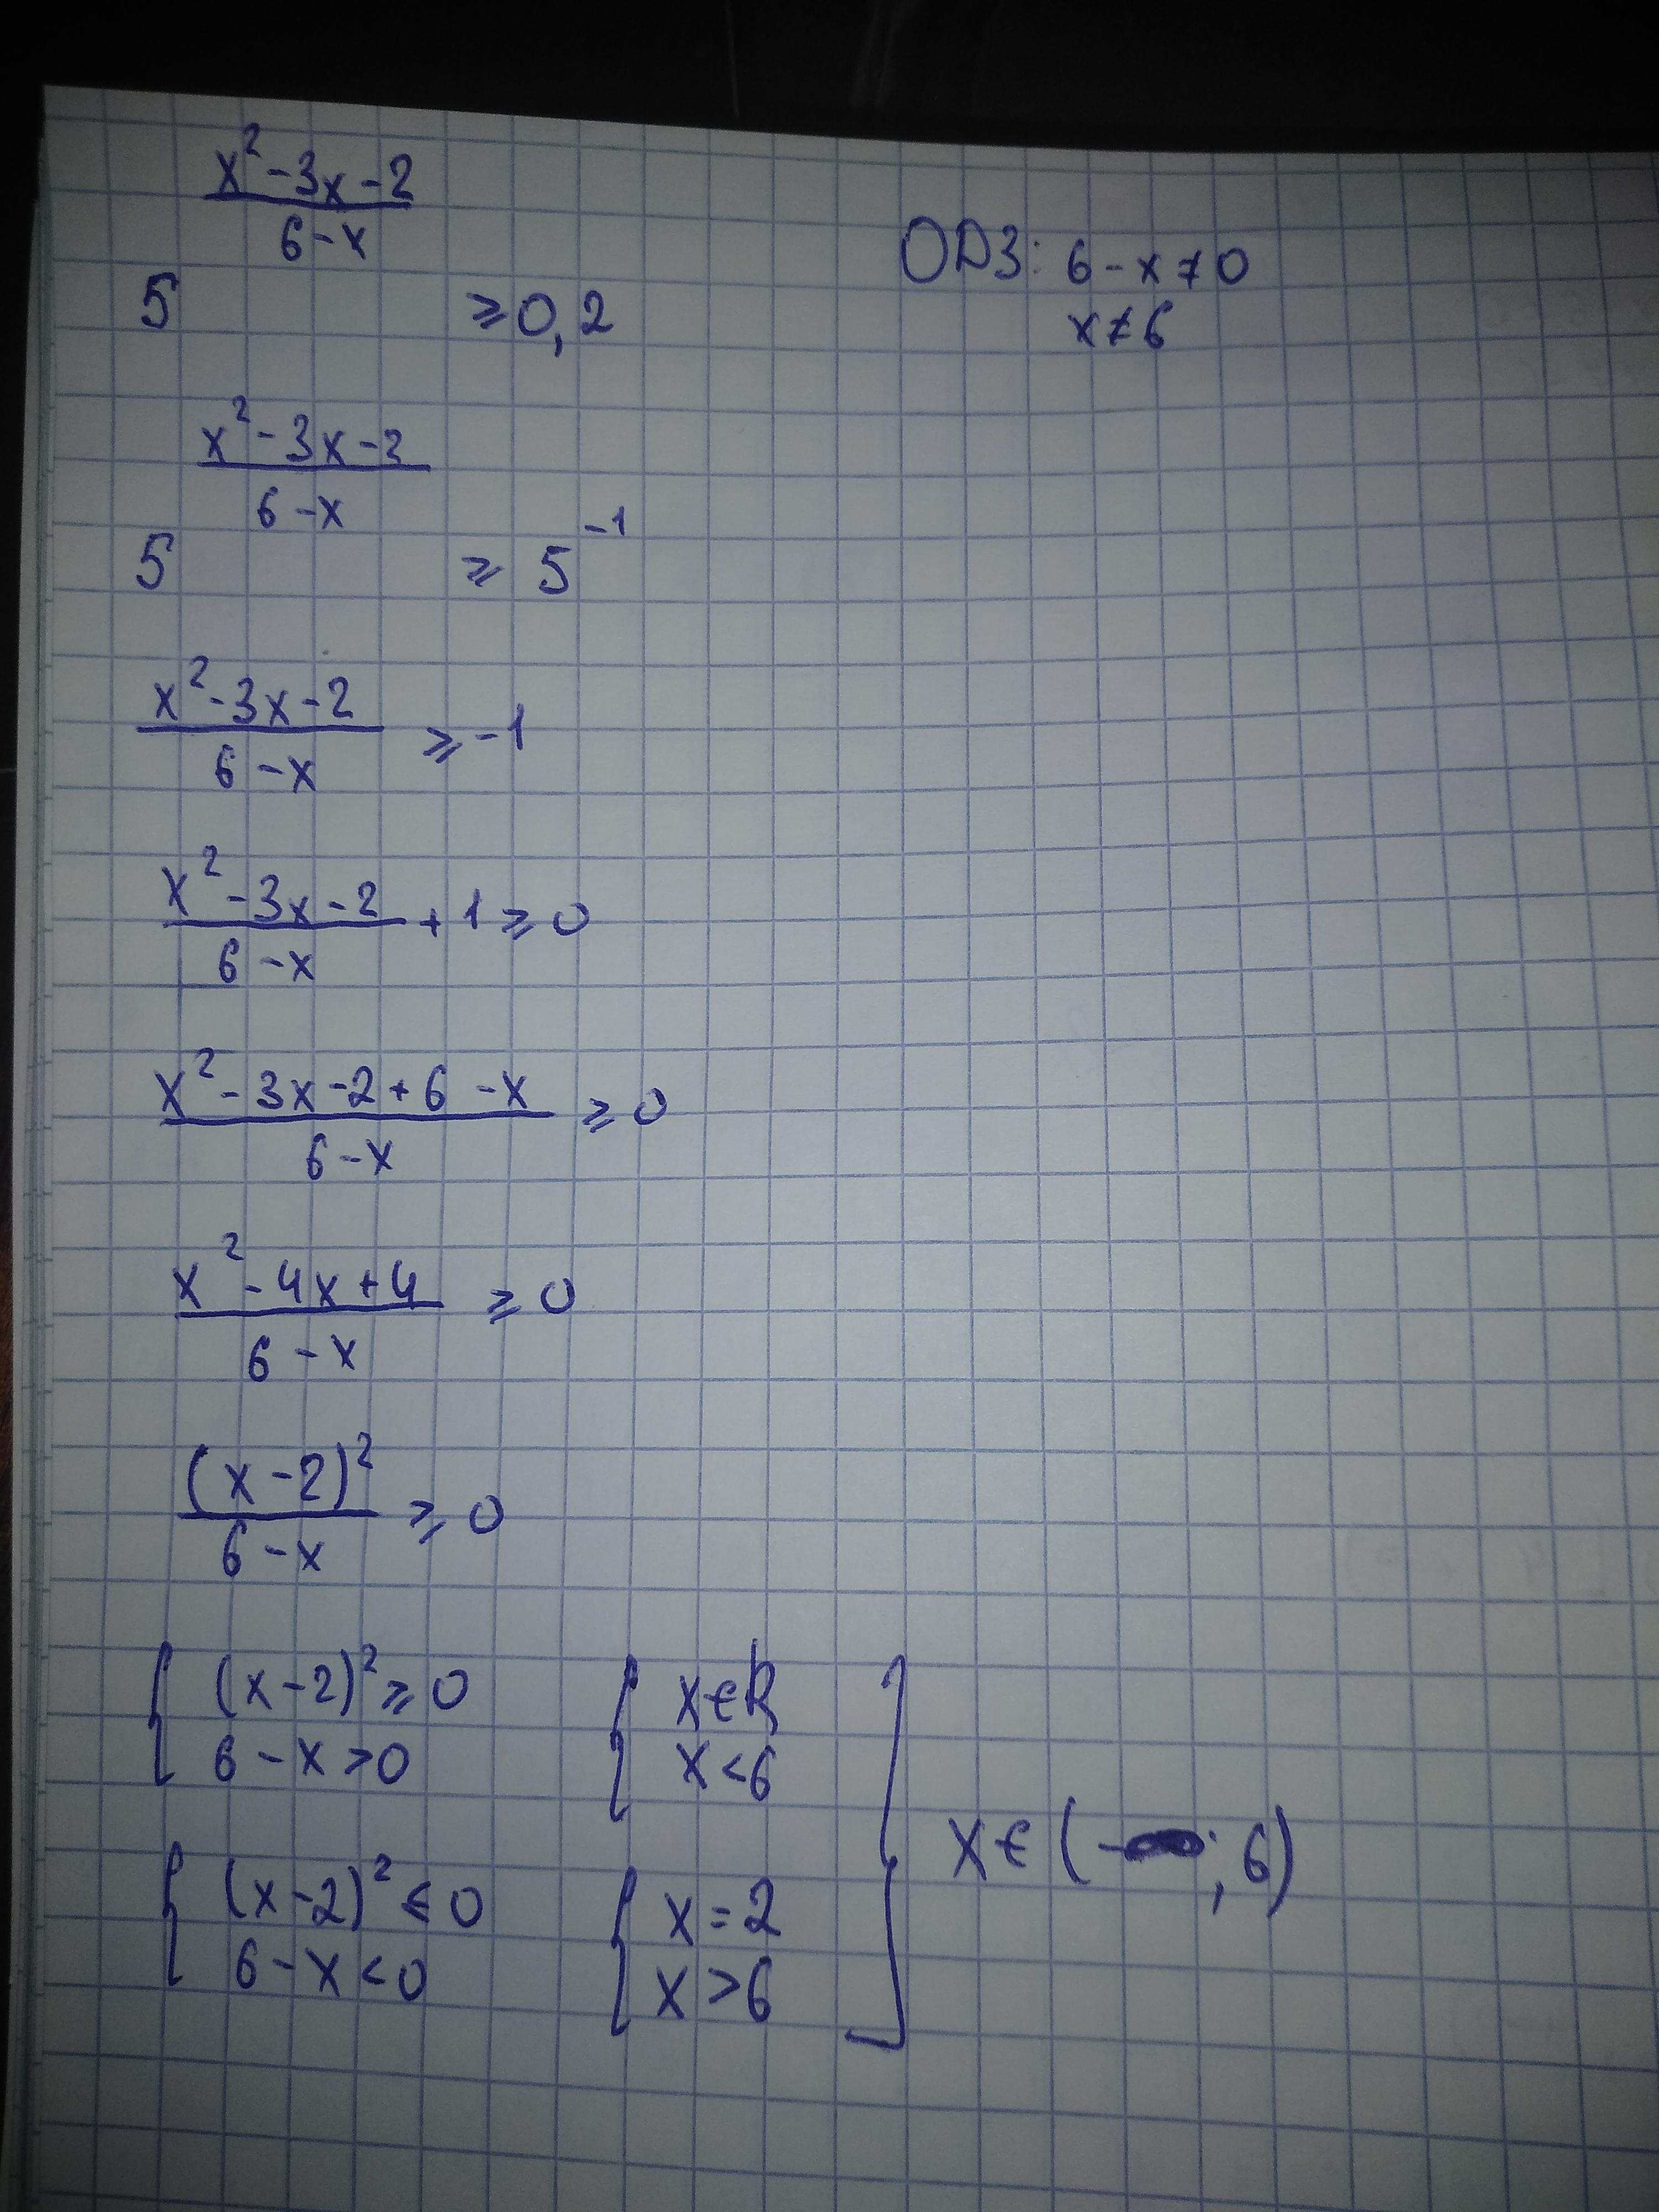 x² - 3x - 2
6 - x
5 ⩾ 0,2
ОДЗ: 6 - x ≠ 0
x ≠ 6
x² - 3x - 2
6 - x
5 ⩾ 5⁻¹
x² - 3x - 2
6 - x
⩾ -1
x² - 3x - 2
6 - x
+ 1 ⩾ 0
x² - 3x - 2 + 6 - x
6 - x
⩾ 0
x² - 4x + 4
6 - x
⩾ 0
(x - 2)²
6 - x
⩾ 0
{ (x - 2)² ⩾ 0
6 - x > 0
{ x ∈ R
x < 6
{ (x - 2)² ⩽ 0
6 - x < 0
{ x = 2
x > 6
] x ∈ (-∞; 6)